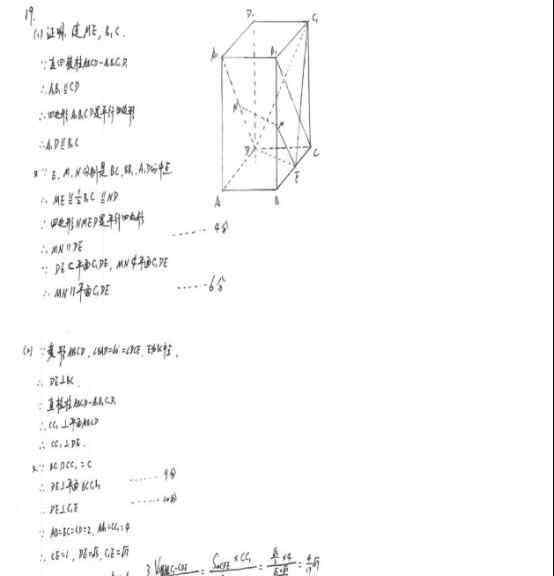 19.
(1) 证明: 连ME, B₁C.
∵直四棱柱ABCD-A₁B₁C₁D₁
∴A₁B₁ ∥ CD
∴四边形A₁B₁CD是平行四边形
∴A₁D∥B₁C
又∵E, M, N分别是BC, BB₁, A₁D的中点
∴ME ∥ ½B₁C ∥ ND
∴四边形NMED是平行四边形
∴MN∥DE ······ 4分
∵DE⊂平面C₁DE, MN⊄平面C₁DE
∴MN∥平面C₁DE ······ 6分
D₁ C₁
A₁ B₁
N M
D C
E
A B
(2) ∵菱形ABCD, ∠BAD=60°=∠DCE, E为BC中点,
∴DE⊥BC.
∵直棱柱ABCD-A₁B₁C₁D₁
∴CC₁⊥平面ABCD
∴CC₁⊥DE.
又∵BC∩CC₁=C
∴DE⊥平面BCC₁B₁ ······ 9分
∴DE⊥C₁E ······ 10分
∵AB=BC=CD=2, AA₁=CC₁=4
∴CE=1, DE=√3, C₁E=√17